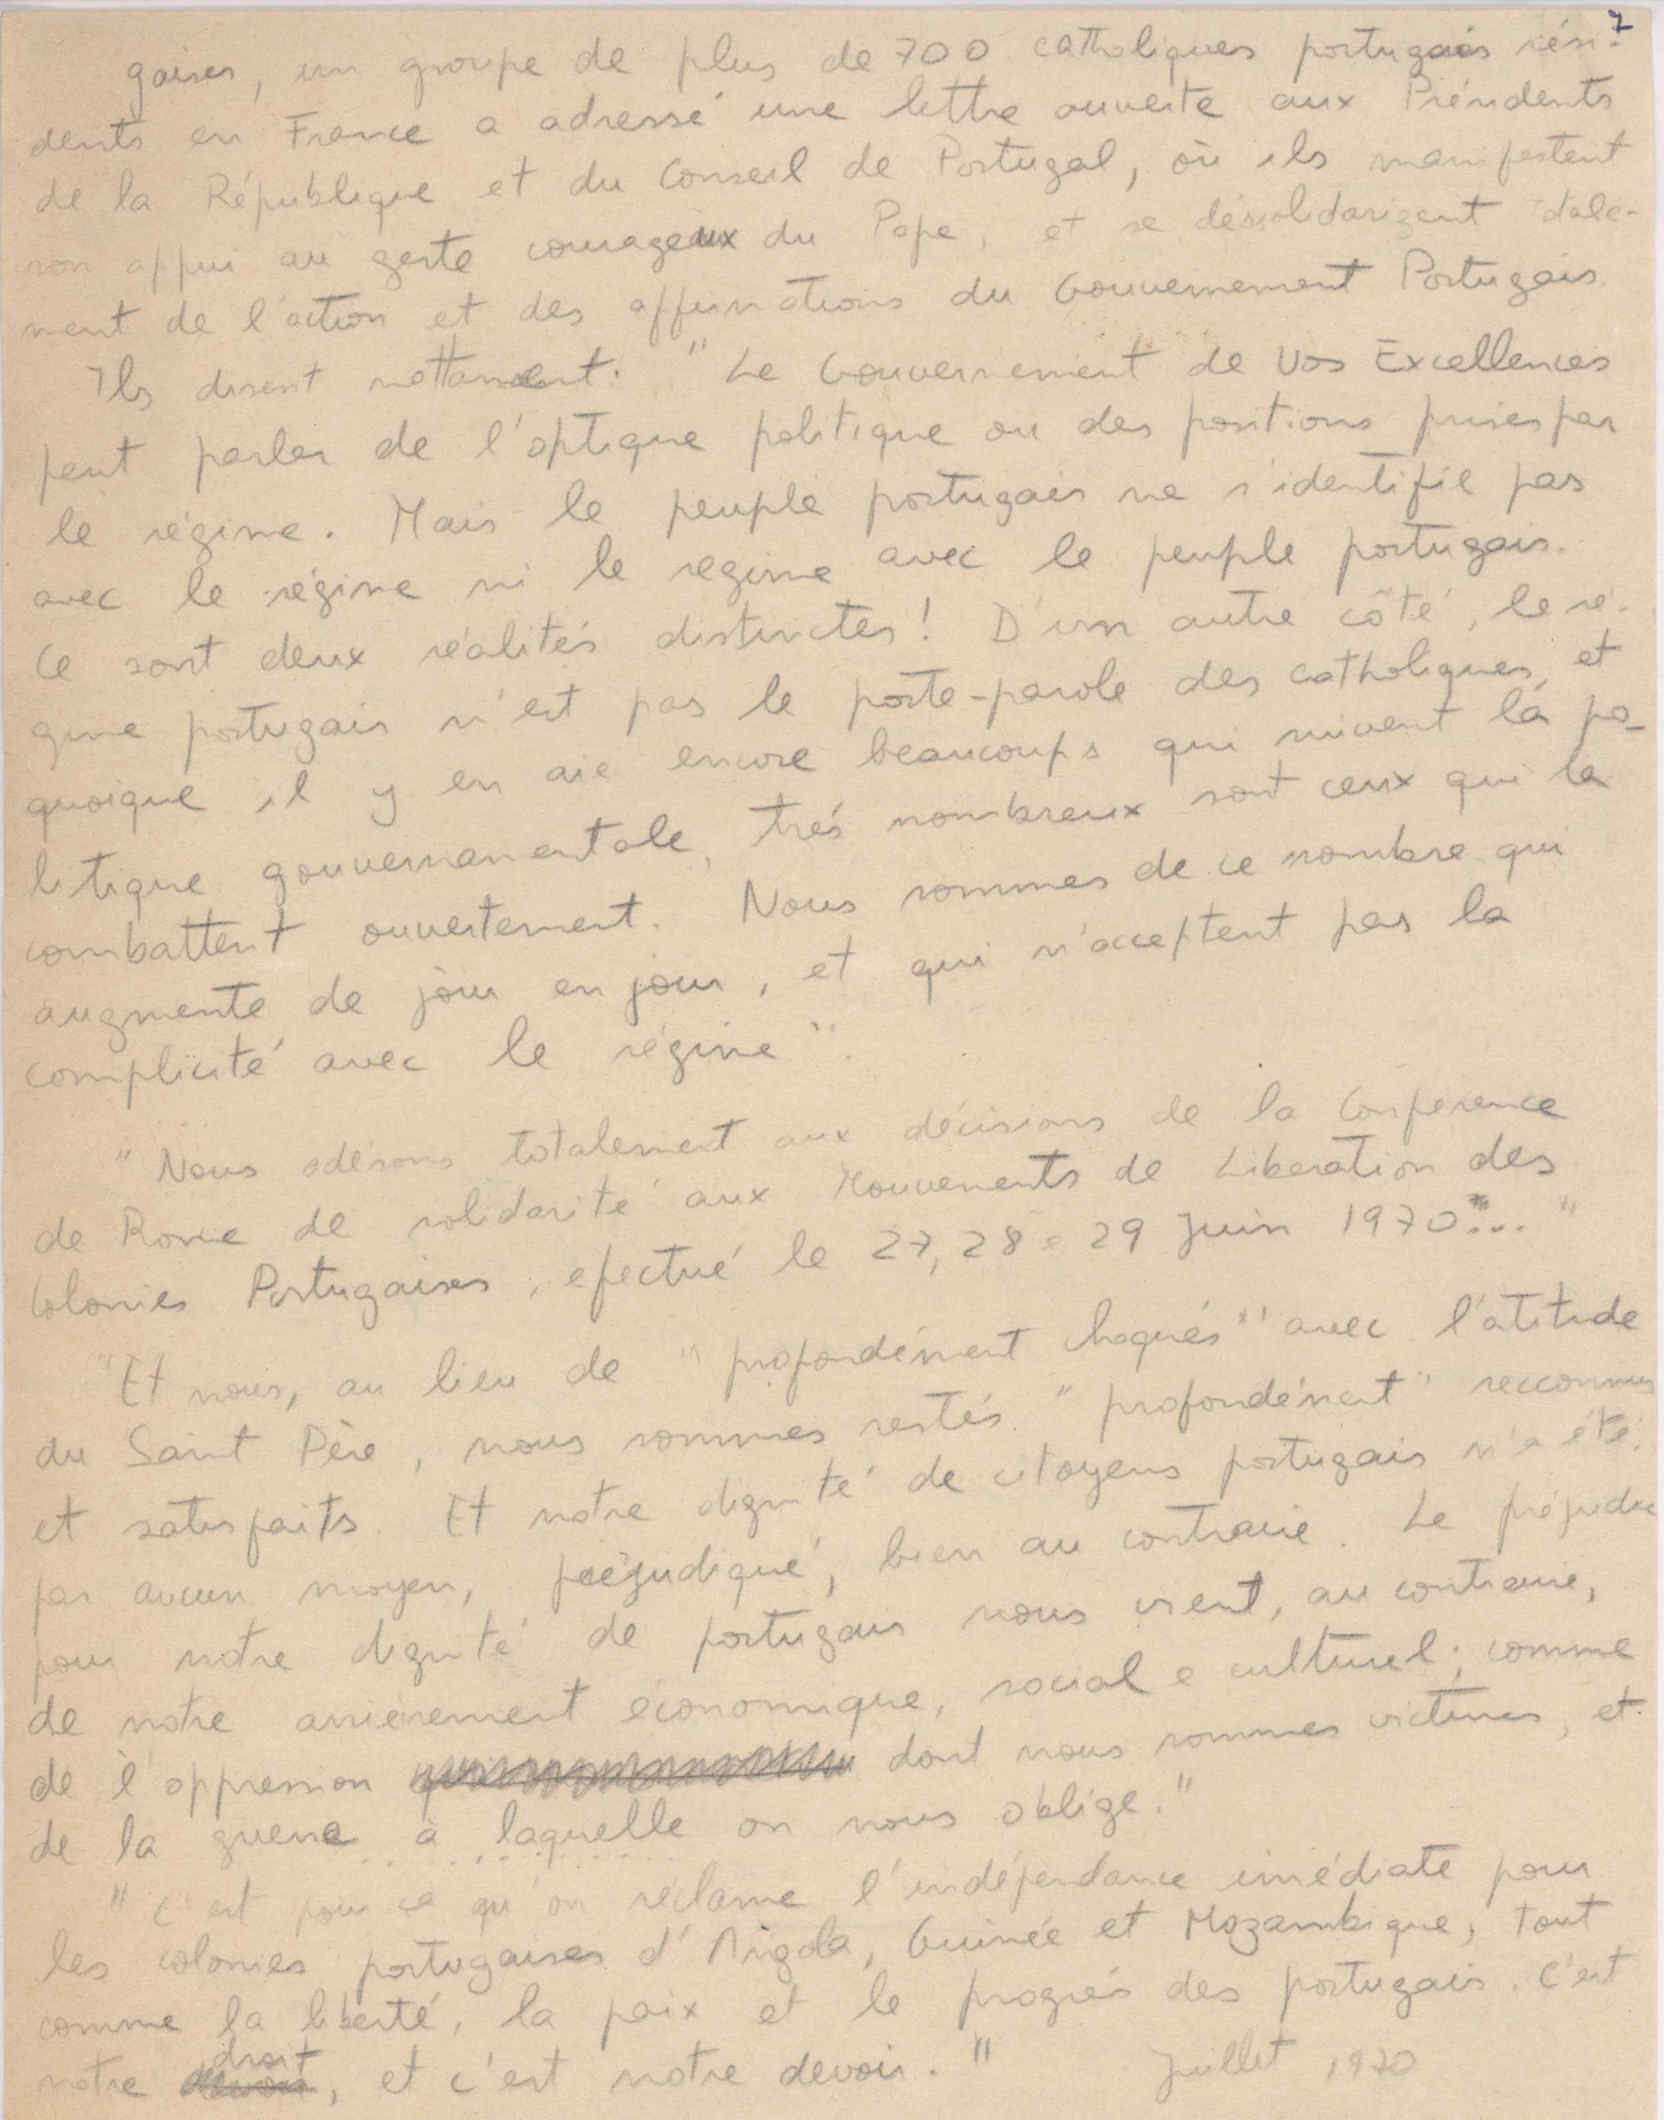 7
gaises, un groupe de plus de 700 catholiques portugais rési-
dents en France a adressé une lettre ouverte aux Présidents
de la République et du Conseil de Portugal, où ils manifestent
son appui au geste courageux du Pape, et se désolidarizent
ment de l'action et des affirmations du Gouvernement Portugais.
Ils disent nottament: "Le Gouvernement de Vos Excellences
peut parler de l'optique politique ou des positions prises par
le régime. Mais le peuple portugais ne s'identifie pas
avec le régime ni le regime avec le peuple portugais.
Ce sont deux réalités distinctes! D'un autre côté, le ré-
gime portugais n'est pas le porte-parole des catholiques, et
quoique il y en aie encore beaucoups qui suivent la po-
litique gouvernamentale, trés nombreux sont ceux qui la
combattent ouvertement. Nous sommes de ce nombre qui
augmente de jour en jour, et qui n'acceptent pas la
complicité avec le régime".
"Nous adérons totalement aux décisions de la Conference
de Rome de solidarité aux Mouvements de Liberation des
Colonies Portugaises, efectué le 27, 28 e 29 Juin 1970..."
"Et nous, au lieu de "profondément choqués" avec l'atitude
du Saint Père, nous sommes restés "profondément" reconnus
et satisfaits. Et notre dignité de citoyens portugais n'a été,
par aucun moyen, préjudiqué, bien au contraire. Le préjudice
pour notre dignité de portugais nous vient, au contraire,
de notre arrièrement économique, social e culturel; comme
de l'oppression dont nous sommes victimes, et
de la guerre à laquelle on nous oblige."
"C'est pour ce qu'on réclame l'indépendance imédiate pour
les colonies portugaises d'Angola, Guinée et Mozambique, tout
comme la liberté, la paix et le progrés des portugais. C'est
notre droit, et c'est notre devoir." Juillet 1970